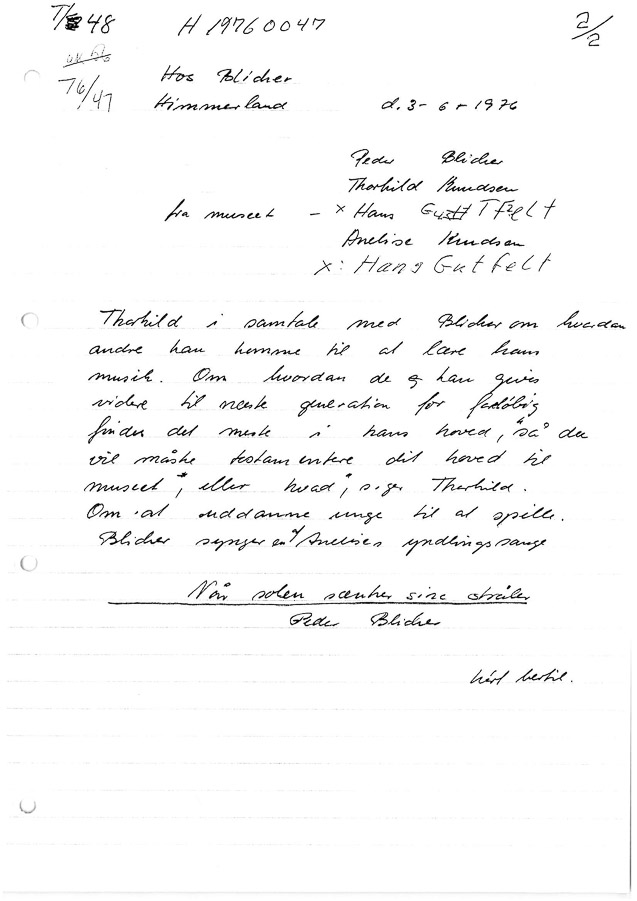 T/48 H 19760047 2/2
76/47
Hos Blicher
Himmerland d. 3-6-1976
Peder Blicher
Thorkild Knudsen
fra museet - x Hans
Anelise Knudsen
x: Hans Gutfelt
Thorkild i samtale med Blicher om hvordan
andre kan komme til at lære hans
musik. Om hvordan de og han gives
videre til næste generation for foreløbig
findes det meste i hans hoved, "så du
vil måske testamentere dit hoved til
museet", eller hvad", siger Thorkild.
Om at uddanne unge til at spille.
Blicher synger en af Anelises yndlingssange
Når solen sænker sine stråler
Peder Blicher
kârl bertil.